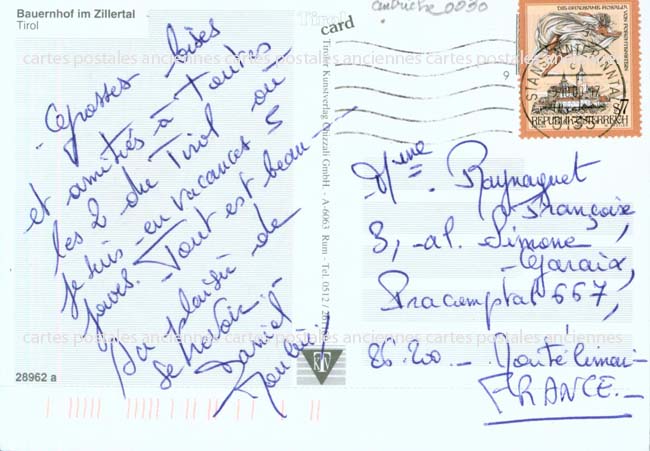 Bauernhof im Zillertal
Tirol
Tirol
card
autriche 0030
Grosses bises
et amitiés à toutes
les 2 du Tirol où
je suis en vacances 5
jours. Tout est beau -
Au plaisir de
se revoir. -
Daniel
28962 a
Tiroler Kunstverlag Chizzali GmbH. - A-6063 Rum - Tel. 0512 /
KV
9
REPUBLIK ÖSTERREICH
S 7
Mme. Raynaguet
Françoise,
3, al. Simone
Garaix,
Pracomptal 667,
26.20 - Montélimar
FRANCE. -
cartes postales anciennes cartes postales anciennes cartes postales anciennes
cartes postales anciennes cartes postales anciennes cartes postales anciennes